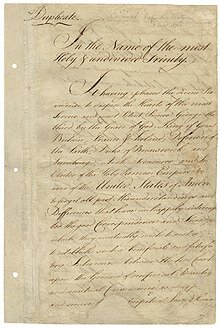 Duplicate.
In the Name of the most
Holy & undivided Trinity.
It having pleased the Divine Pro-
vidence to dispose the Hearts of the most
Serene and most Potent Prince George the
third, by the Grace of God, King of Great
Britain, France & Ireland, Defender of
the Faith, Duke of Brunswick and
Lunebourg, Arch Treasurer and
Elector of the Holy Roman Empire &ca
and of the United States of America
to forget all past Misunderstandings and
Differences that have unhappily interrupted
the good Correspondence and Friendship
which they mutually wish to
establish such a beneficial and satisfac-
between the two Countries
upon the Ground of reciprocal Advantages
and mutual Convenience as may
and secure perpetual Peace & Harmony